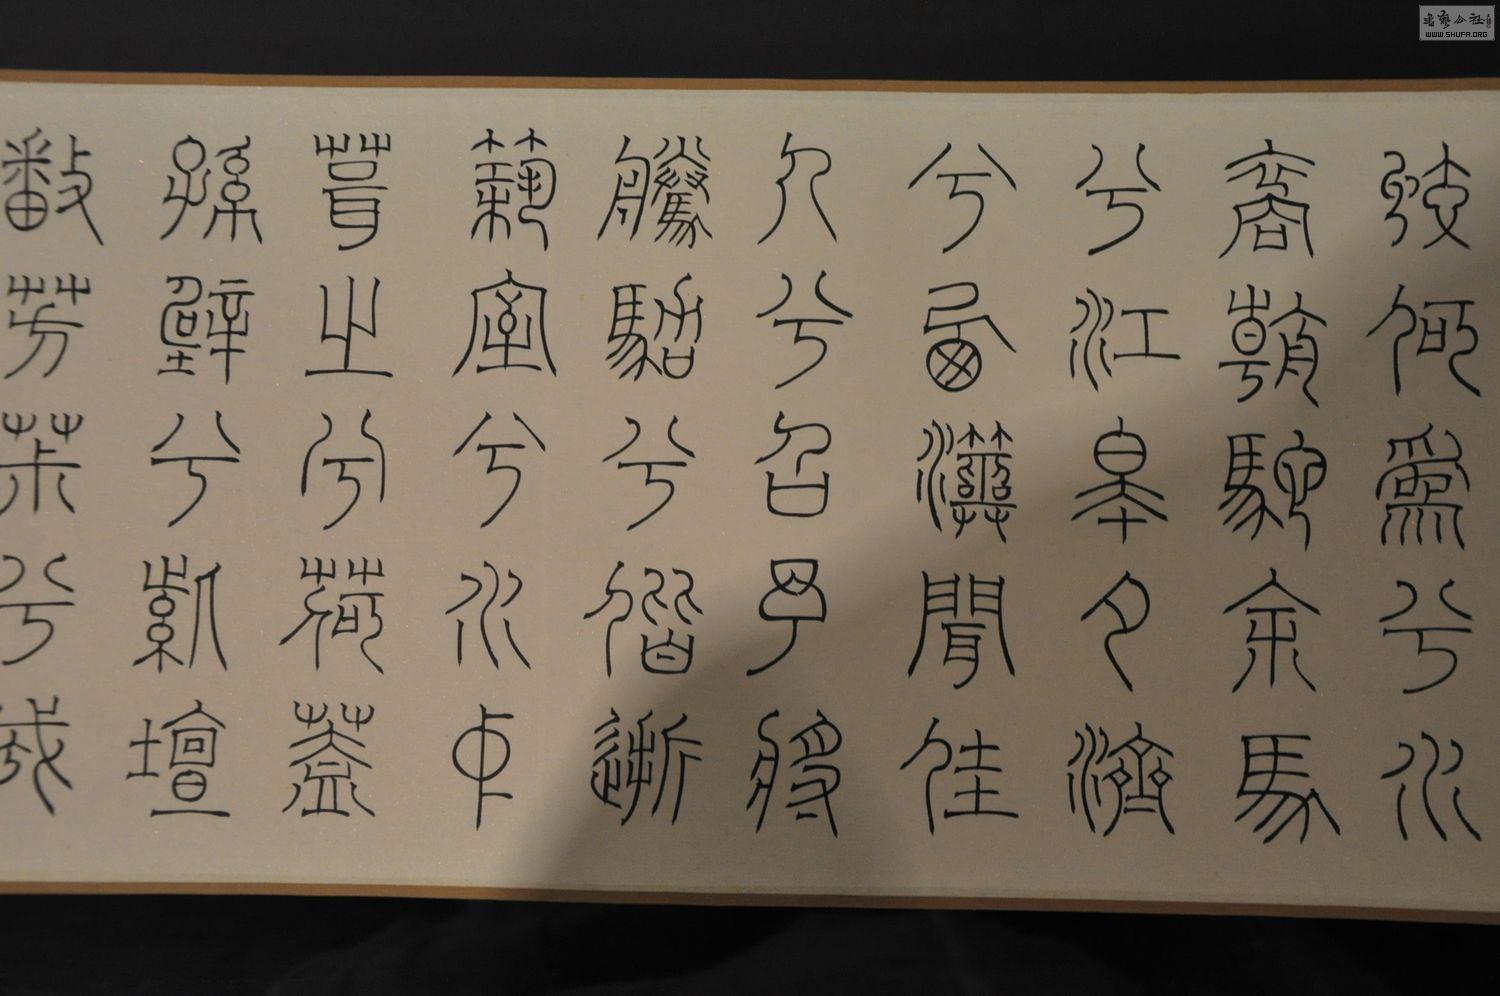 蛟何為兮水
裔朝馳余馬
兮江皋夕濟
兮西澨聞佳
人兮召予將
騰駕兮偕逝
築室兮水中
葺之兮荷蓋
孫壁兮紫壇
𢿥芳茮兮成
WWW.SHUFA.ORG